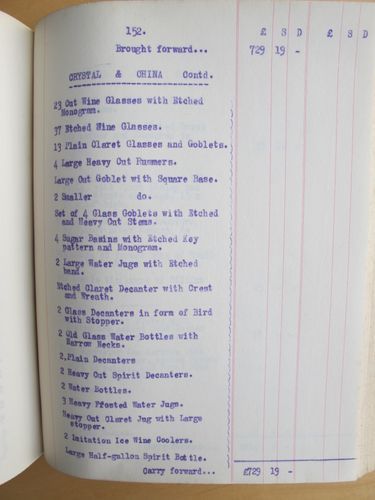 152.
£ S D £ S D
Brought forward... 729 19 -
CRYSTAL & CHINA Contd.
23 Cut Wine Glasses with Etched
Monogram.
37 Etched Wine Glasses.
13 Plain Claret Glasses and Goblets.
4 Large Heavy Cut Rummers.
Large Cut Goblet with Square Base.
2 Smaller do.
Set of 4 Glass Goblets with Etched
and Heavy Cut Stems.
4 Sugar Basins with Etched Key
pattern and Monogram.
2 Large Water Jugs with Etched
band.
Etched Claret Decanter with Crest
and Wreath.
2 Glass Decanters in form of Bird
with Stopper.
2 Old Glass Water Bottles with
Narrow Necks.
2.Plain Decanters
2 Heavy Cut Spirit Decanters.
2 Water Bottles.
3 Heavy Frosted Water Jugs.
Heavy Cut Claret Jug with Large
stopper.
2 Imitation Ice Wine Coolers.
Large Half-gallon Spirit Bottle.
Carry forward... £729 19 -